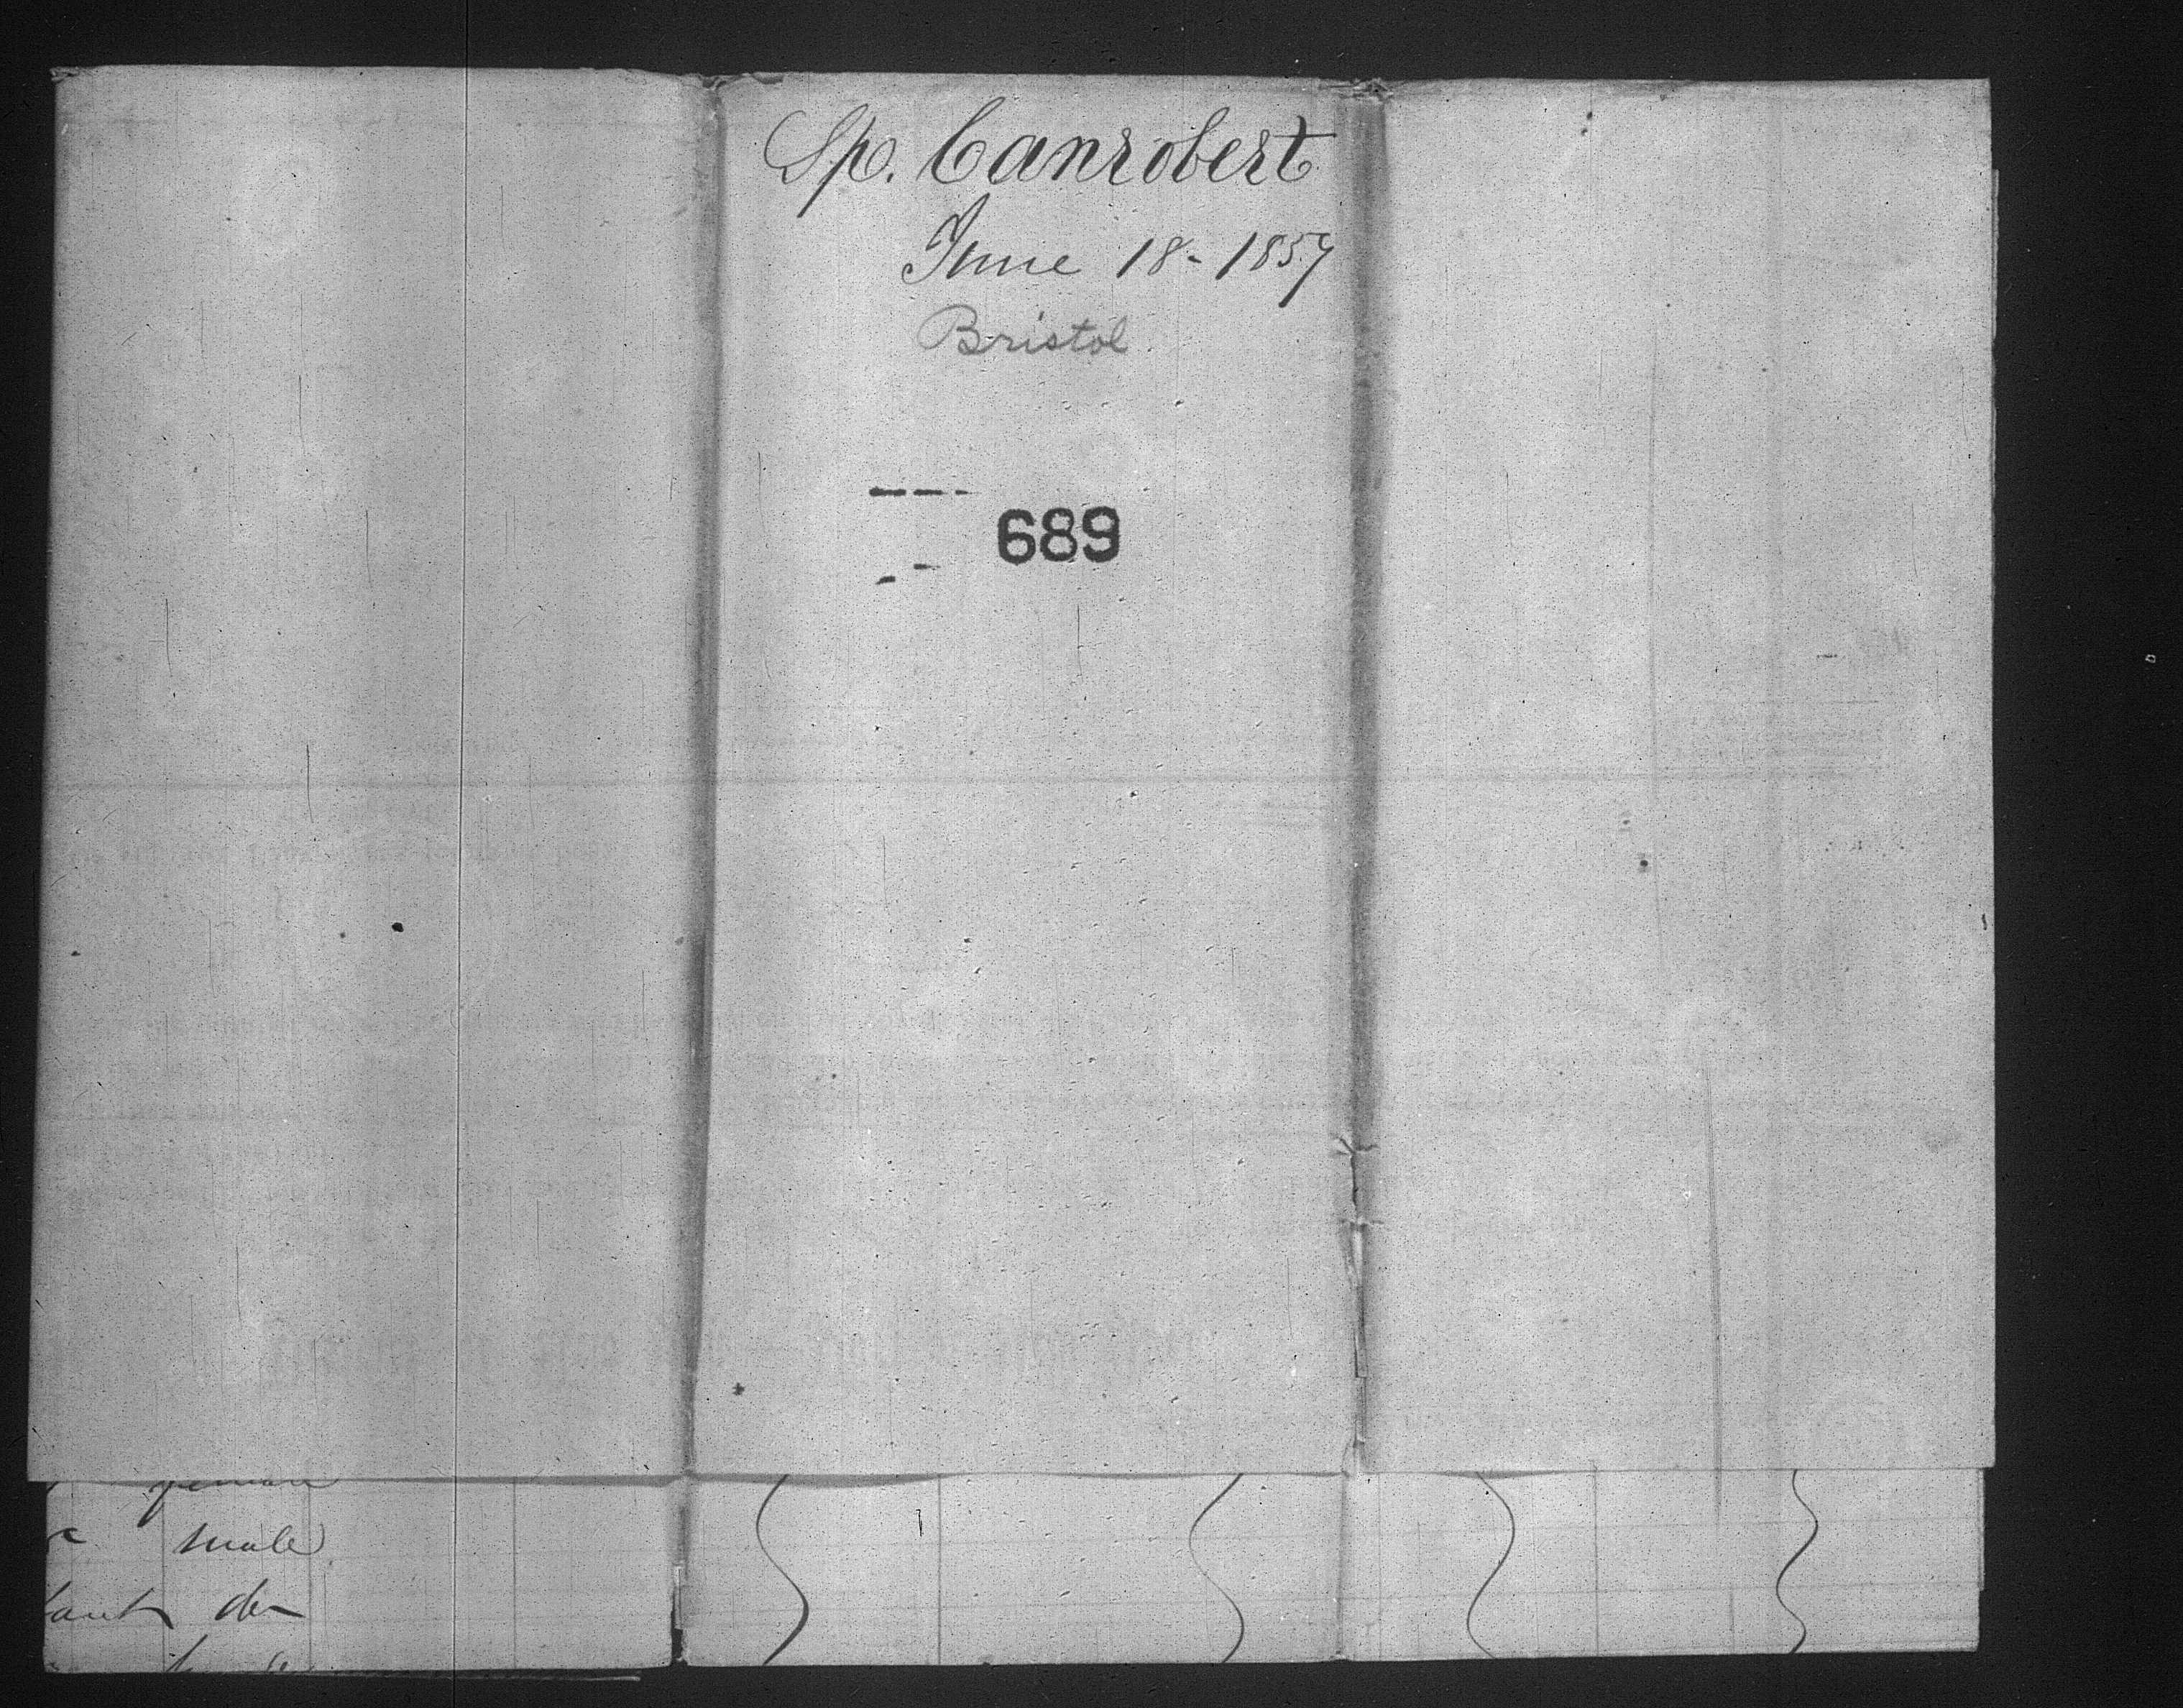 Sp. Canrobert
June 18-1857
Bristol
689
male
do